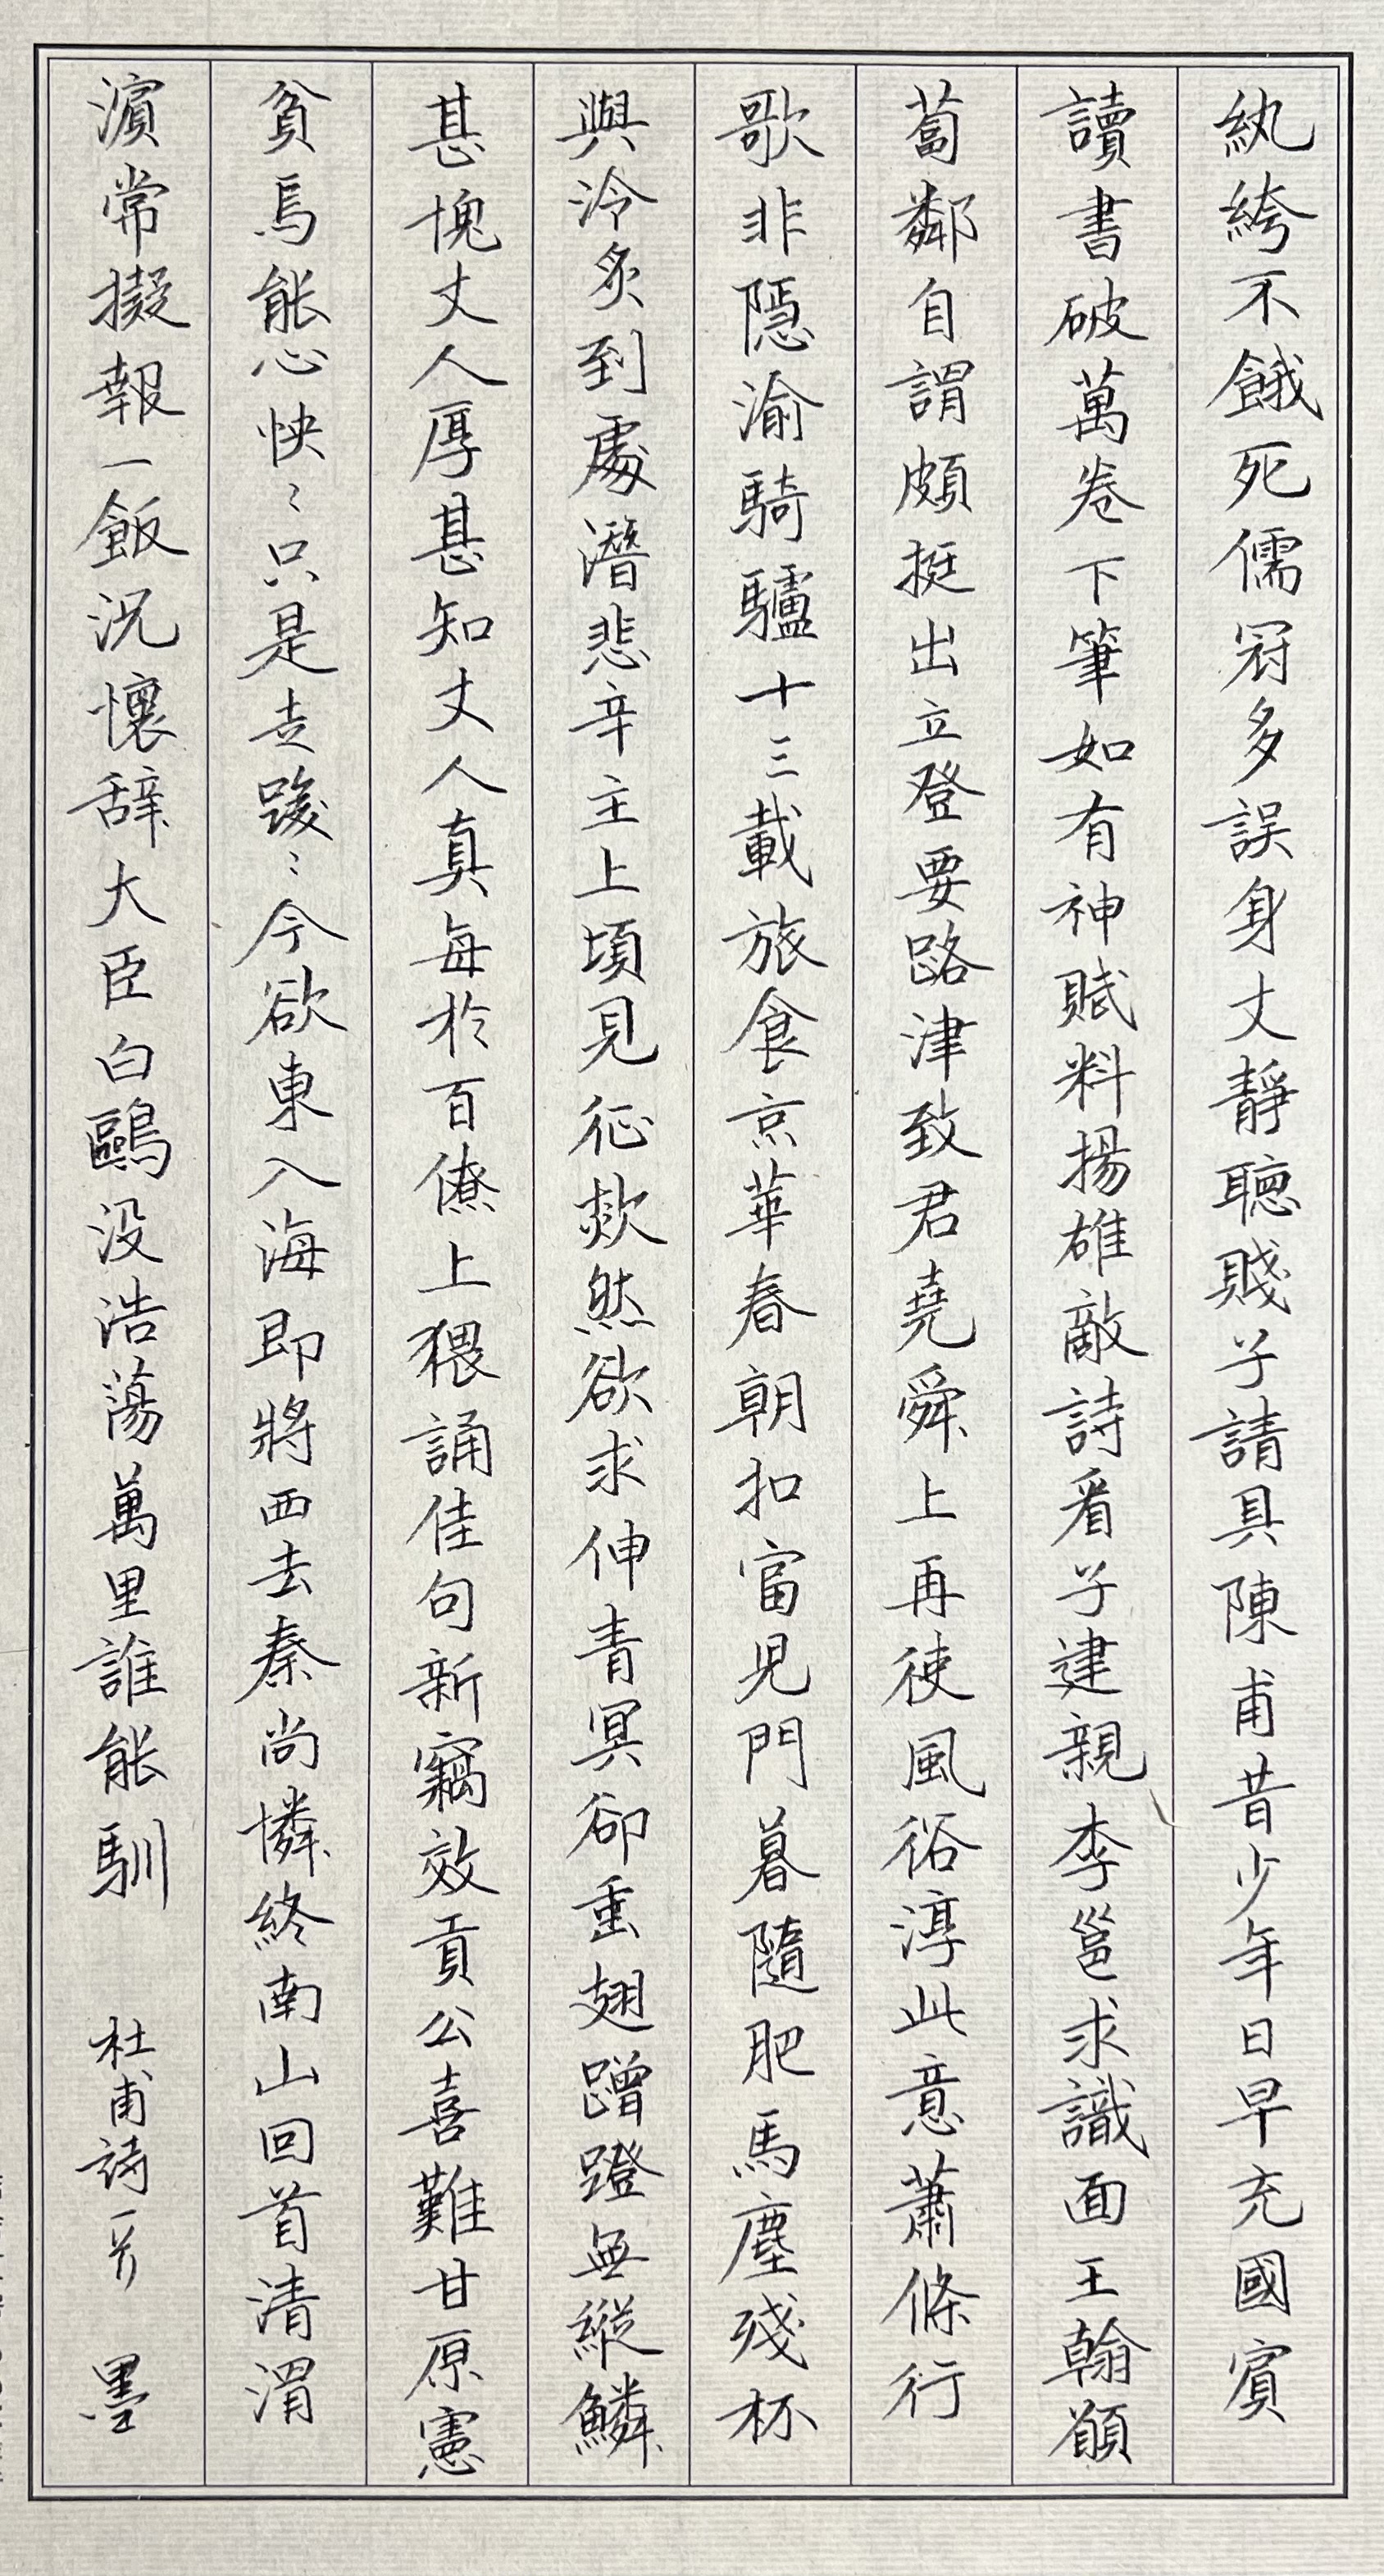 紈絝不餓死儒冠多誤身丈靜聽賤子請具陳甫昔少年日早充國賓
讀書破萬卷下筆如有神賦料揚雄敵詩看子建親李邕求識面王翰願
蔔鄰自謂頗挺出立登要路津致君堯舜上再使風俗淳此意蕭條行
歌非隱淪騎驢十三載旅食京華春朝扣富兒門暮隨肥馬塵殘杯
與冷炙到處潛悲辛主上頃見征歘然欲求伸青冥卻垂翅蹭蹬無縱鱗
甚愧丈人厚甚知丈人真每於百僚上猥誦佳句新竊效貢公喜難甘原憲
貧焉能心怏〻只是走踆〻今欲東入海即將西去秦尚憐終南山回首清渭
濱常擬報一飯況懷辭大臣白鷗没浩蕩萬里誰能馴 杜甫詩一首 墨